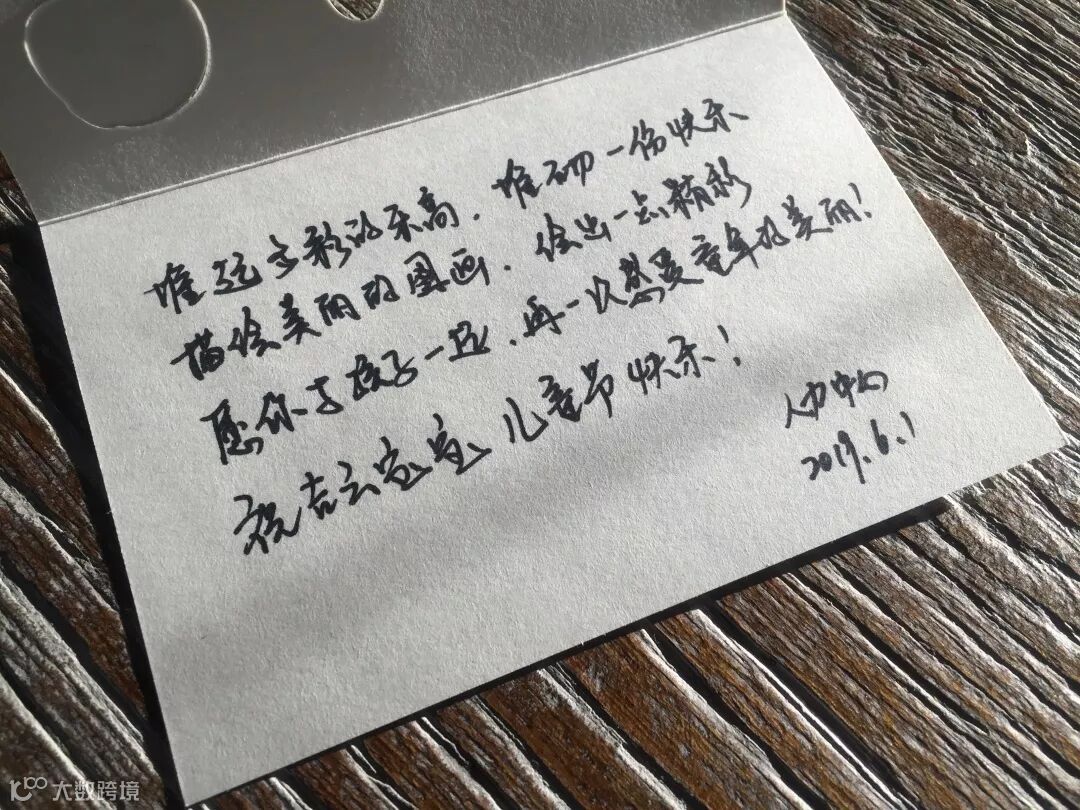 堆起多彩的乐高，堆砌一份快乐
描绘美丽的图画，绘出一点精彩
愿你与孩子一起，再一次感受童年的美丽！
祝吉云宝宝儿童节快乐！
人力中心
2019.6.1
大数跨境